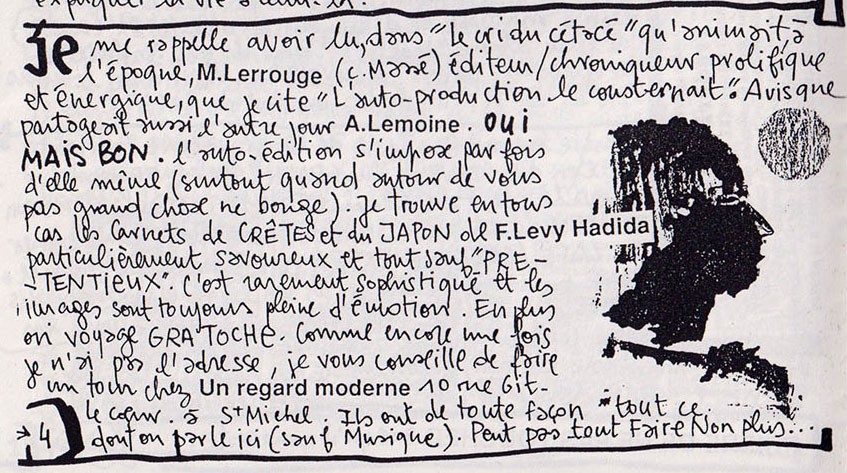 expliquer la vie à
je me rappelle avoir lu, dans "le cri du cétacé" qu'animait, à
l'époque, M.Lerrouge (ç. Massé) éditeur/chroniqueur prolifique
et énergique, que je cite "L'auto-production le consternait". Avis que
partageait aussi l'autre jour A.Lemoine. OUI
MAIS BON. l'auto-édition s'impose par fois
d'elle même (surtout quand autour de vous
pas grand chose ne bouge). Je trouve en tous
cas les Carnets de CRÊTES et du JAPON de F.Levy Hadida
particulièrement savoureux et tout sauf "PRE-
-TENTIEUX". C'est rarement sophistiqué et les
images sont toujours pleine d'émotion. En plus
on voyage GRATOCHE. Comme encore une fois
je n'ai pas l'adresse, je vous conseille de faire
un tour chez Un regard moderne 10 rue Git-
le cœur. à St Michel. Ils ont de toute façon "tout ce
dont on parle ici (sauf Musique). Peut pas tout Faire Non plus...
→ 4